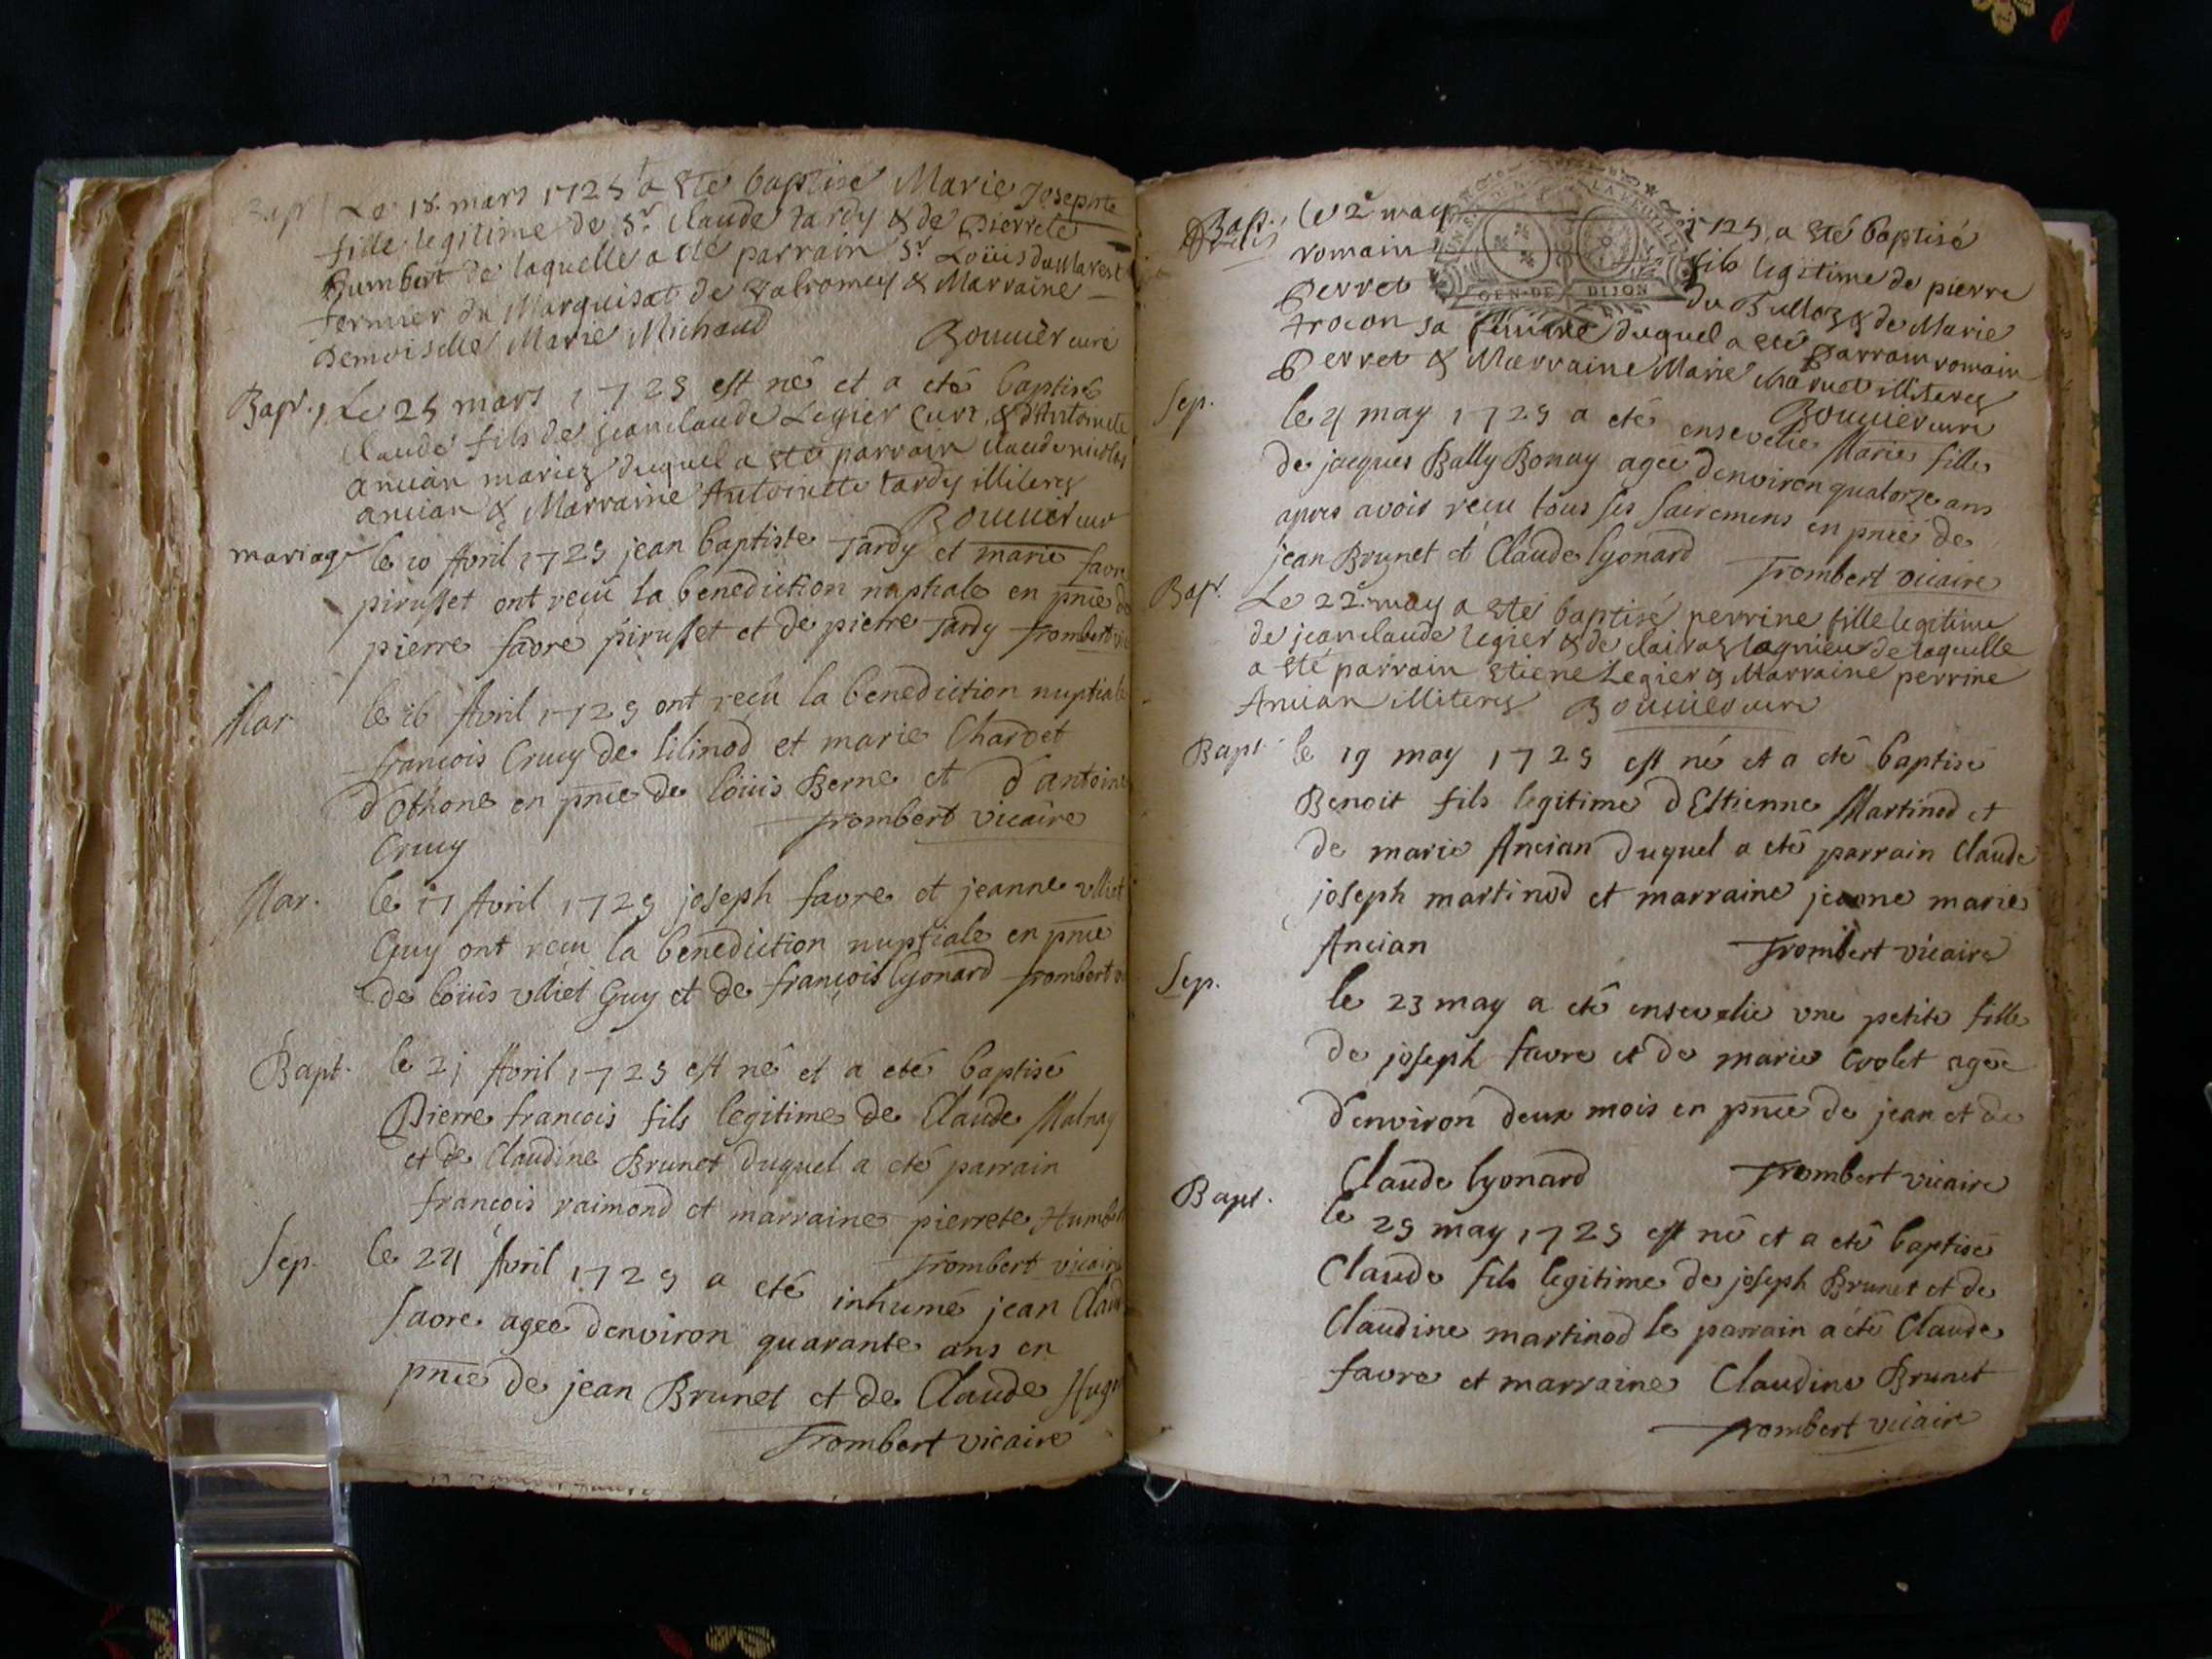 Bapt. Le 18. mars 1725 a Eté baptisé Marie Josephte
fille legitime de Sr. Claude tardy & de Pierrete
humbert de laquelle a eté parrain Sr. Loüis
fermier du Marquisat de Valromey & Marraine
Demoiselle Marie Michaud Bouuiér curé
Bapt., Le 25 mars 1725 est né et a eté baptisé
Claude fils de jeanclaude Legier Curt, & d'Antoinete
ancian mariez duquel a eté parrain Claude nicolas
ancian & Marraine Antoinete tardy illiterez
Bouuier curé
mariage le 10 Avril 1725 jean baptiste Tardy et marie favre
pirusset ont reçu la benediction nuptiale en pnce de
pierre favre pirusset et de pierre Tardy Trombert vic
Mar. le 16 Avril 1725 ont reçu la benediction nuptiale
françois Cruiy de lilinod et marie Chardet
d'Othone en pnce de löuis Berne et d'antoine
Cruiy Trombert vicaire
Mar. le 17 Avril 1725 joseph favre et jeanne vlliet
Guy ont recu la benediction nuptiale en pnce
de löuis vlliet Guy et de françois lyonard Trombert v
Bapt. le 21 Avril 1725 est né et a eté baptisé
Pierre francois fils legitime de Claude Malnay
et de Claudine Brunet duquel a eté parrain
francois raimond et marraine pierrete Humb
Trombert vicaire
Sep. le 24 Avril 1725 a eté inhumé jean Claud
favre agee denviron quarante ans en
pnce de jean Brunet et de Claude Hugo
Trombert vicaire
Bapt., le 2e may 1725, a eté baptisé
romain fils legitime de pierre
Perret du & de Marie
trocon sa femme duquel a eté parrain romain
Perret & Marraine Marie illiterez
Bouuier curé
GEN. DE DIJON
Sep. le 4 may 1725 a eté ensevelie Marie fille
de jacques Bally Bonay agee denviron quatorze ans
apres avoir reçu tous ses sacremens en pnce de
jean Brunet et Claude lyonard Trombert vicaire
Bapt. Le 22e may a eté baptisé perrine fille legitime
de jeanclaude legier & de lagnieu de laquelle
a eté parrain Etiene Legier & Marraine perrine
Ancian illiterez Bouuier curé
Bapt. le 19 may 1725 est né et a eté baptisé
Benoit fils legitime d'Estienne Martinod et
de marie Ancian duquel a eté parrain Claude
joseph martinod et marraine jeanne marie
Ancian Trombert vicaire
Sep. le 23 may a eté ensevelie vne petite fille
de joseph favre et de marie Coolet agée
d'environ deux mois en pnce de jean et de
Claude lyonard Trombert vicaire
Bapt. le 25 may 1725 est né et a eté baptisé
Claude fils legitime de joseph Brunet et de
Claudine martinod le parrain a eté Claude
favre et marraine Claudine Brunet
Trombert vicaire